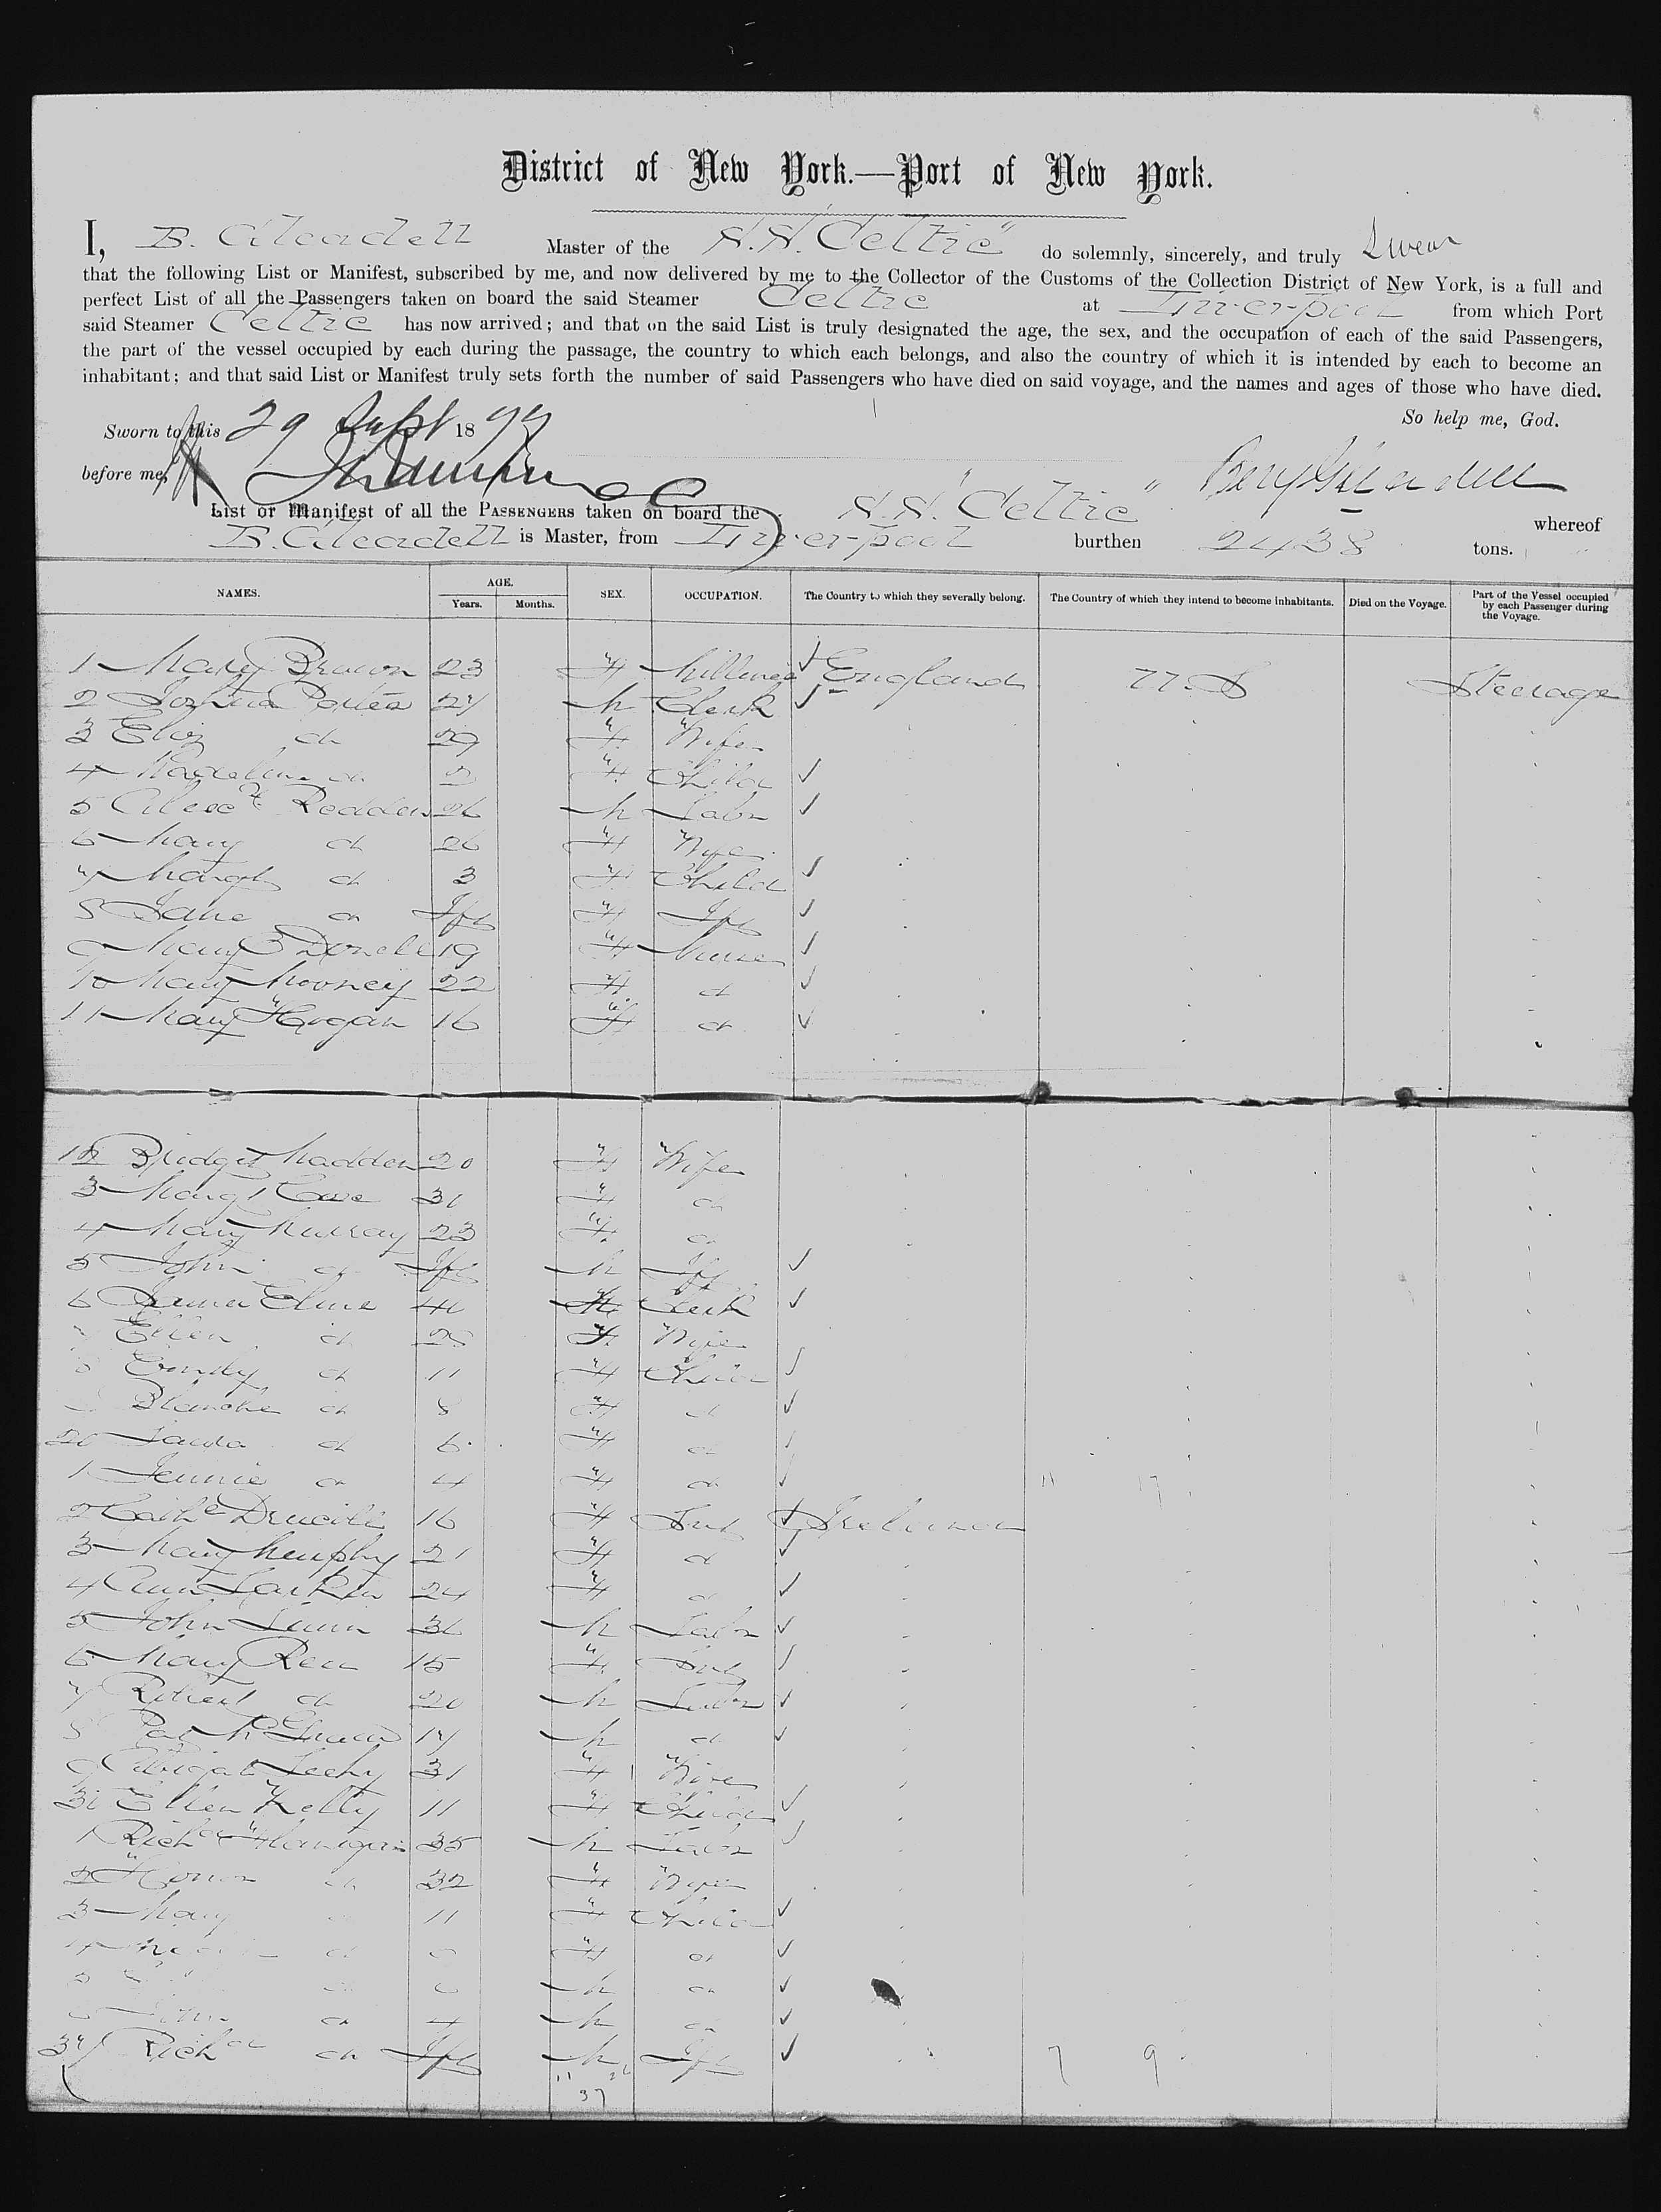 District of New York.—Port of New York.
I, B. Gleadell Master of the S.S. "Celtic" do solemnly, sincerely, and truly Swear
that the following List or Manifest, subscribed by me, and now delivered by me to the Collector of the Customs of the Collection District of New York, is a full and
perfect List of all the Passengers taken on board the said Steamer Celtic at Liverpool from which Port
said Steamer Celtic has now arrived; and that on the said List is truly designated the age, the sex, and the occupation of each of the said Passengers,
the part of the vessel occupied by each during the passage, the country to which each belongs, and also the country of which it is intended by each to become an
inhabitant; and that said List or Manifest truly sets forth the number of said Passengers who have died on said voyage, and the names and ages of those who have died.
So help me, God.
Sworn to this 29 Sept 1877
before me,
Benj Gleadell
List or Manifest of all the PASSENGERS taken on board the S.S. "Celtic" whereof
B. Gleadell is Master, from Liverpool burthen 2438 tons.
NAMES. AGE. SEX. OCCUPATION. The Country to which they severally belong. The Country of which they intend to become inhabitants. Died on the Voyage. Part of the Vessel occupied by each Passenger during the Voyage.
Years. Months.
1 Mary Brown 23 F Milliner England U.S Steerage
2 Porter 27 M Clerk
3 Eliz do 29 F Wife
4 Madeline do 2 F Child
5 Alexr Redden 26 M Labr
6 Mary do 26 F Wife
7 Margt do 3 F Child
8 Jane do Inft F Inft
9 Mary 19 F Nurse
10 Mary Mooney 22 F do
11 Mary Hogan 16 F do
12 Bridget Madden 20 F Wife
3 Margt 31 F do
4 Mary Murray 23 F do
5 John do Inft M Inft
6 40 M Clerk
7 Ellen do F Wife
8 Emily do 11 F Child
9 Blanche do 8 F do
20 Laura do 6 F do
1 Jennie do 4 F do 11 17
2 Cathe 16 F Ireland
3 Mary Murphy 21 F do
4 Ann Larkin 24 F do
5 John 36 M Labr
6 Mary 15 F
7 Robert do 20 M Labr
8 Pat 17 M do
9 Abigail Leehy 31 F Wife
30 Ellen Kelly 11 F Child
1 Richd Flanigan 35 M Labr
2 do 32 F Wife
3 Mary do 11 F Child
4 do F do
5 do M do
6 do 4 M do
37 Richd do Inft M Inft 7 9
11 26
37